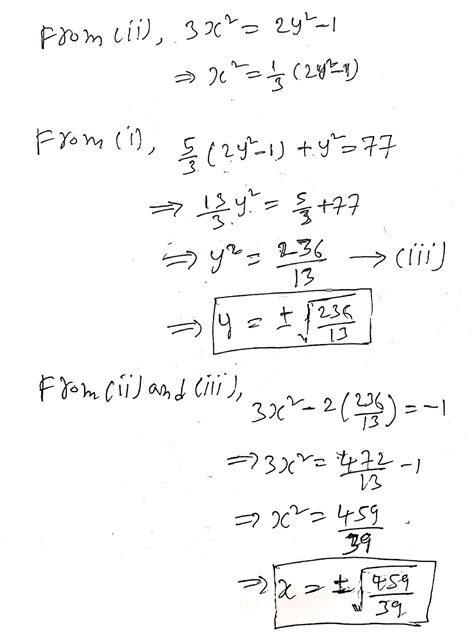 From (ii), 3x² = 2y²-1
⇒ x² = 1/3 (2y²-1)
From (i), 5/3 (2y²-1) + y² = 77
⇒ 13/3 y² = 5/3 + 77
⇒ y² = 236/13 → (iii)
⇒ y = ± √(236/13)
From (ii) and (iii),
3x² - 2(236/13) = -1
⇒ 3x² = 472/13 - 1
⇒ x² = 459/39
⇒ x = ± √(459/39)